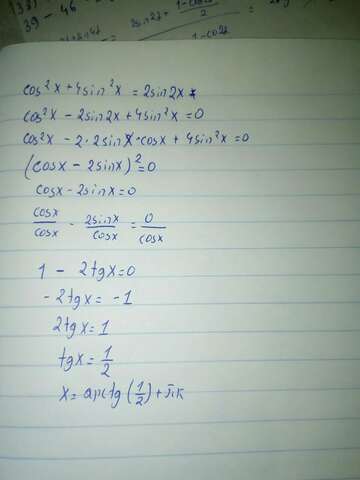 39 - 46
1-cos2x
cos²x + 4sin²x = 2sin2x
cos²x - 2sin2x + 4sin²x = 0
cos²x - 2·2sinx·cosx + 4sin²x = 0
(cosx - 2sinx)² = 0
cosx - 2sinx = 0
cosx/cosx - 2sinx/cosx = 0/cosx
1 - 2tgx = 0
-2tgx = -1
2tgx = 1
tgx = 1/2
x = arctg(1/2) + πk